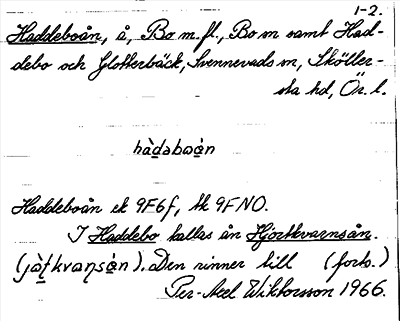 1-2.
Haddeboån, å, Bo m.fl., Bo sn samt Had-
debo och Glotterbäck, Svennevads sn, Sköller-
sta hd, Ör. l.
hàdəbωån
Haddeboån ek 9F6f, tk 9F NO.
I Haddebo kallas ån Hjortkvarnsån.
(jòt̬kvaɳsån). Den rinner till (forts.)
Per-Axel Wiktorsson 1966.